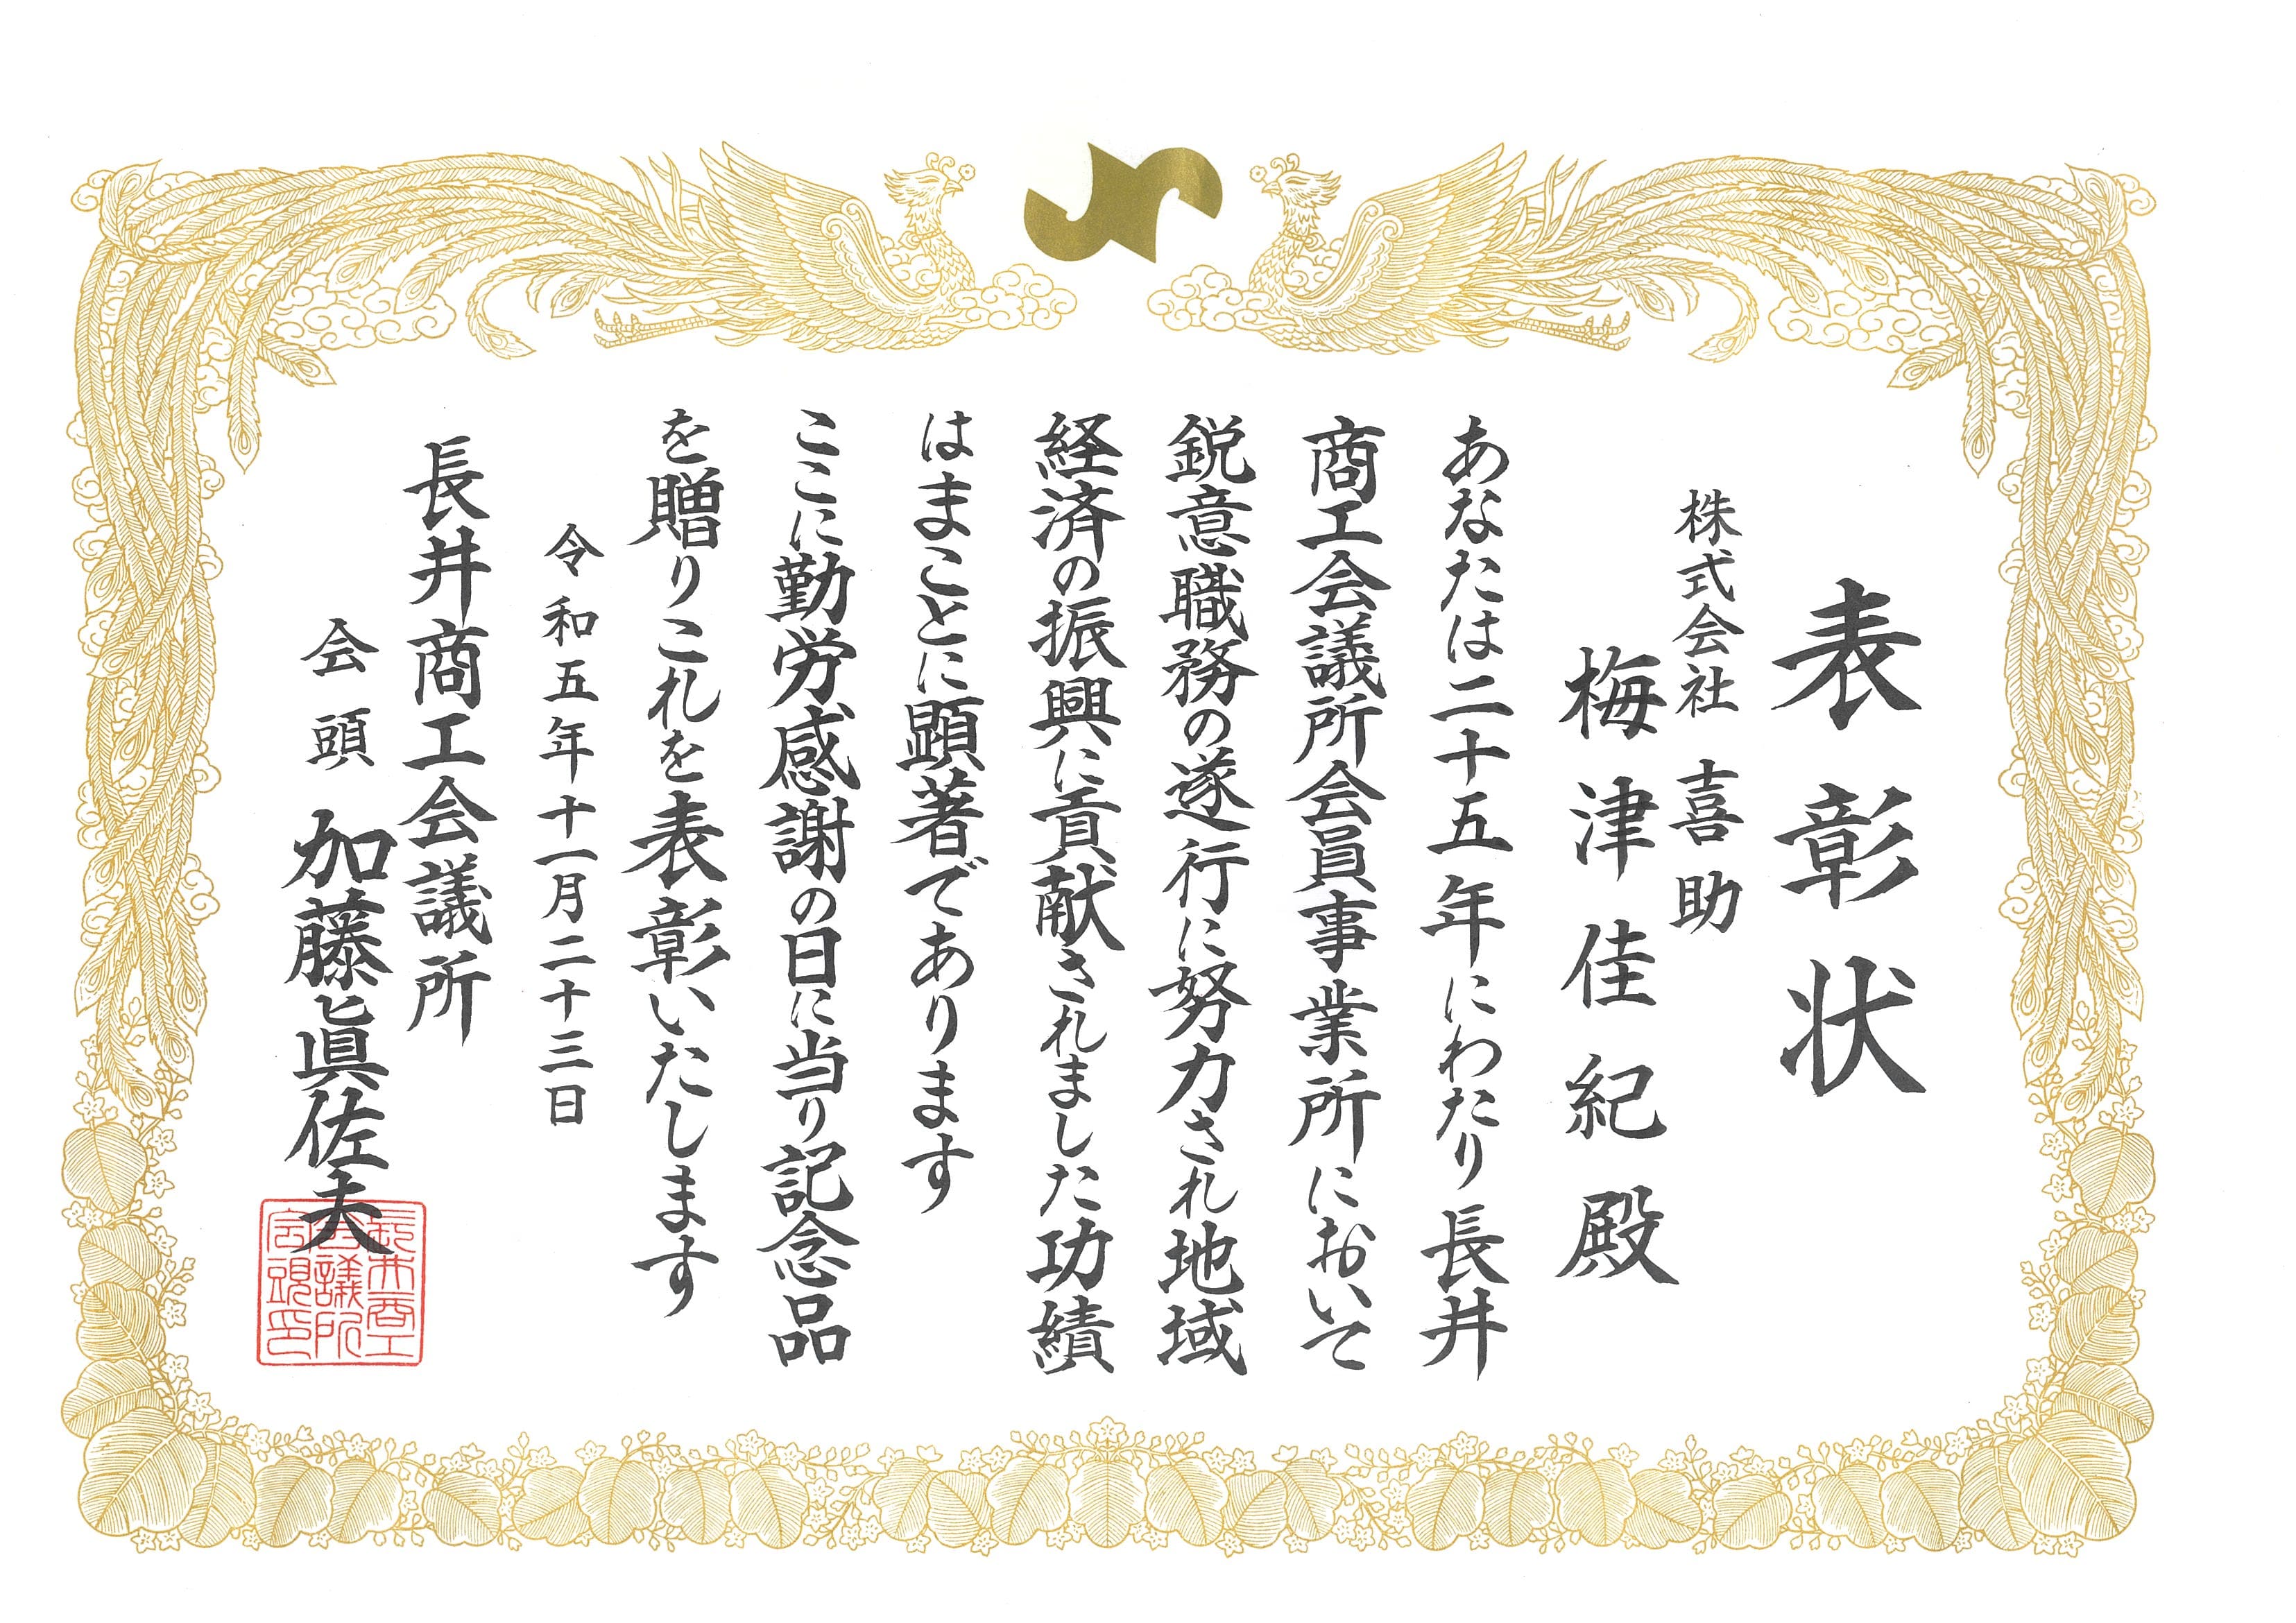 表彰状
株式会社 喜助
梅津佳紀殿
あなたは二十五年にわたり長井
商工会議所会員事業所において
鋭意職務の遂行に努力され地域
経済の振興に貢献されました功績
はまことに顕著であります
ここに勤労感謝の日に当り記念品
を贈りこれを表彰いたします
令和五年十一月二十三日
長井商工会議所
会頭 加藤眞佐夫
長井商工
会議所
会頭印